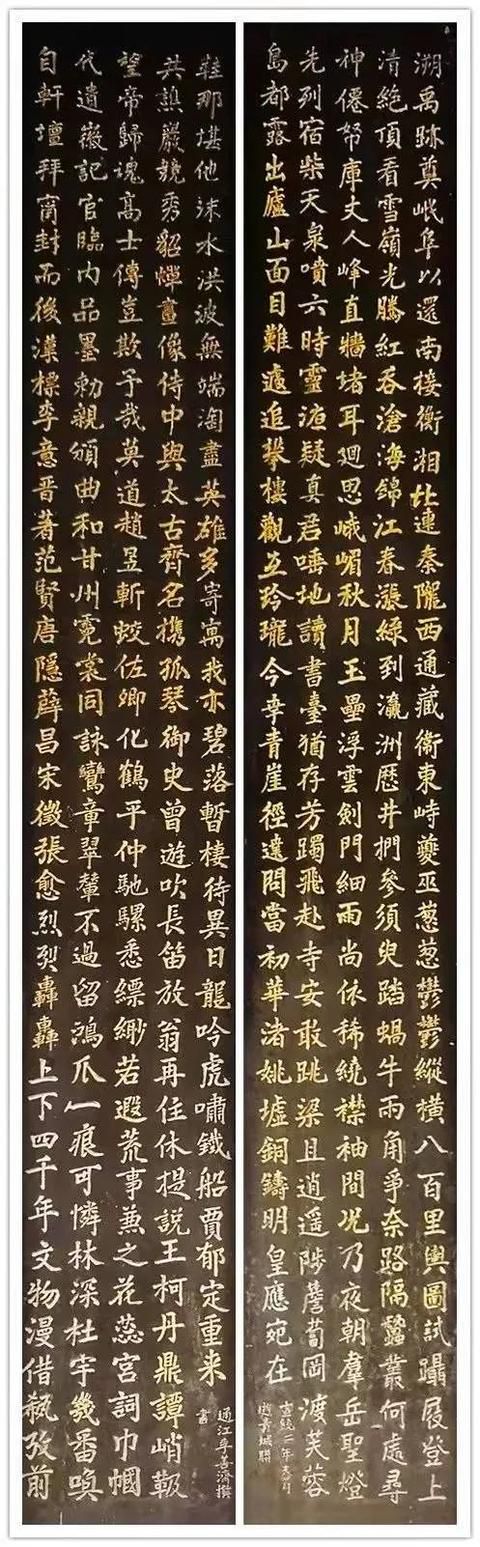 溯禹跡奠岷阜以還南接衡湘北連秦隴西通藏衞東峙夔巫葱葱鬱鬱縱橫八百里輿圖試躡屐登上
清絕頂看雪嶺光騰紅吞滄海錦江春漲綠到瀛洲歷井捫參須臾踏蝸牛兩角爭奈路隔蠶叢何處尋
神僊帑庫丈人峰直牆堵耳迴思峨嵋秋月玉壘浮雲劍門細雨尚依稀繞襟袖間况乃夜朝羣岳聖燈
先列宿柴天泉噴六時靈液疑真君唾地讀書臺猶存芳躅飛赴寺安敢跳梁且逍遥陟薝蔔岡渡芙蓉
島都露出廬山面目難遽追攀樓觀互玲瓏今幸青崖徑達問當初華渚姚墟銅鑄明皇應宛在
宣統二年
遊青城聯
自軒壇拜甯封而後漢標李意晉著范賢唐隱薛昌宋徵張愈烈烈轟轟上下四千年文物漫借瓻攷前
代遺徽記官臨內品墨勅親頒曲和甘州霓裳同詠鸞章翠輦不過留鴻爪一痕可憐林深杜宇幾番喚
望帝歸魂高士傳豈欺予哉莫道趙昱斬蛟佐卿化鶴平仲馳騾悉縹緲若遐荒事兼之花蕊宮詞巾幗
共譔巖競秀貂蟬畫像侍中與太古齊名攜孤琴御史曾遊吹長笛放翁再住休提說王柯丹鼎譚峭靸
鞋那堪他沫水洪波無端淘盡英雄多寄寓我亦碧落暫棲待異日龍吟虎嘯鐵船賈郁定重來
通江李善濟撰
書